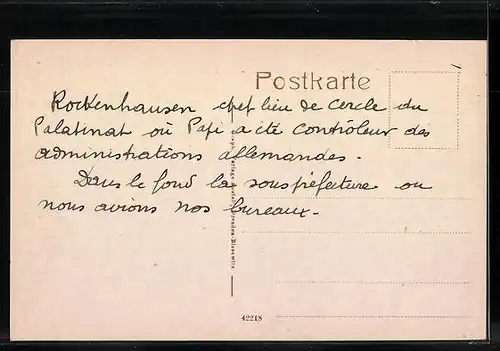 Postkarte
Rockenhausen chef lieu de cercle du
Palatinat où Papi a été contrôleur des
administrations allemandes.
Dans le fond la souspréfecture ou
nous avions nos bureaux.
42218